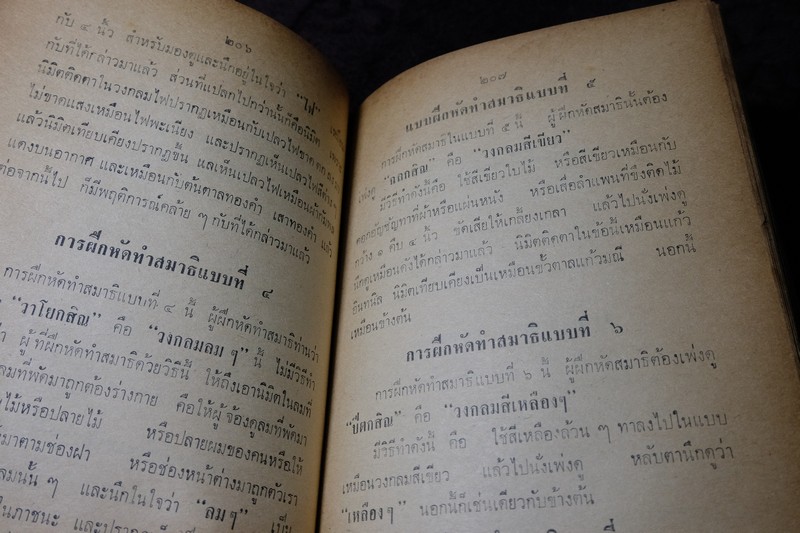 ๒๐๖
กับ ๔ นิ้ว สำหรับมองดูและนึกอยู่ในใจว่า "ไฟ"
กับที่ได้กล่าวมาแล้ว ส่วนที่แปลกไปกว่านั้นก็คือนิมิต
นิมิตติดตาในวงกลมไฟปรากฏเหมือนกับเปลวไฟขาด
ไม่ขาดแสงเหมือนไฟพะเนียง และปรากฏเห็นเปลวไฟสีต่าง ๆ
แล้วนิมิตเทียบเคียงปรากฏขึ้น แลเห็นเปลวไฟเหมือนผ้ากัมพล
แดงบนอากาศ และเหมือนกับต้นตาลทองคำ เสาทองคำ แล้ว
ต่อจากนี้ไป ก็มีพฤติการณ์คล้าย ๆ กับที่ได้กล่าวมาแล้ว
การฝึกหัดทำสมาธิแบบที่ ๔
การฝึกหัดทำสมาธิแบบที่ ๔ นี้ ผู้ฝึกหัดทำสมาธิท่านว่า
"วาโยกสิณ" คือ "วงกลมลม ๆ" นี้ ไม่มีวิธีทำ
ผู้ที่ฝึกหัดทำสมาธิด้วยวิธีนี้ ให้ถึงเอานิมิตในลมที่
ลมที่พัดมาถูกต้องร่างกาย คือให้ผู้จ้องดูลมที่พัดมา
ไม้หรือปลายไม้ หรือปลายผมของคนหรือให้
มาตามช่องฝา หรือช่องหน้าต่างมาถูกตัวเรา
ลมนั้น ๆ และนึกในใจว่า "ลม ๆ" เป็น
ในภาชนะ และปรากฏ
๒๐๗
แบบฝึกหัดทำสมาธิแบบที่ ๕
การฝึกหัดทำสมาธิในแบบที่ ๕ นี้ ผู้ฝึกหัดสมาธินั้นต้อง
เพ่งดู "นีลกสิณ" คือ "วงกลมสีเขียว"
มีวิธีทำดังนี้คือ ใช้สีเขียวใบไม้ หรือสีเขียวเหมือนกับ
ดอกอัญชัญทาที่ผ้าหรือแผ่นหนัง หรือเสื่อลำแพนที่ขึงติดไม้
กว้าง ๑ คืบ ๔ นิ้ว ขัดเสียให้เกลี้ยงเกลา แล้วไปนั่งเพ่งดู
นึกดูเหมือนดังได้กล่าวมาแล้ว นิมิตติดตาในข้อนี้เหมือนแก้ว
อินทนิล นิมิตเทียบเคียงเป็นเหมือนขั้วตาลแก้วมณี นอกนี้
เหมือนข้างต้น
การฝึกหัดทำสมาธิแบบที่ ๖
การฝึกหัดทำสมาธิแบบที่ ๖ นี้ ผู้ฝึกหัดสมาธิต้องเพ่งดู
"ปีตกสิณ" คือ "วงกลมสีเหลืองๆ"
มีวิธีทำดังนี้ คือ ใช้สีเหลืองล้วน ๆ ทาลงไปในแบบ
เหมือนวงกลมสีเขียว แล้วไปนั่งเพ่งดู หลับตานึกดูว่า
"เหลืองๆ" นอกนี้ก็เช่นเดียวกับข้างต้น